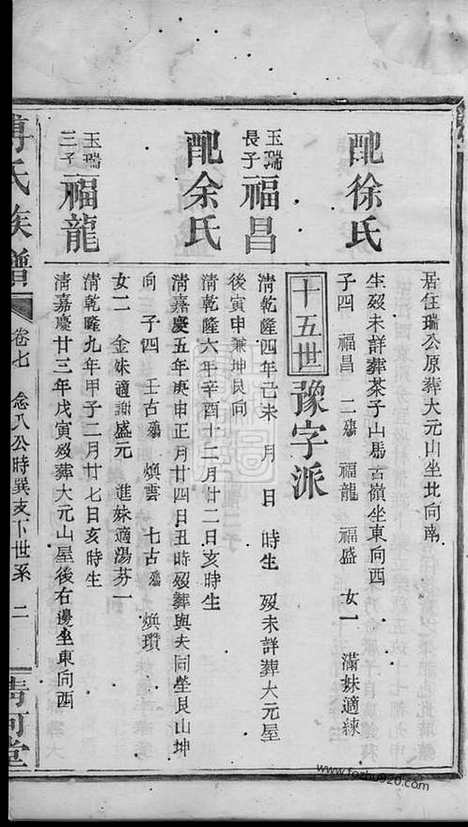 居住瑞公原葬大元山坐北向南
配徐氏
生歿未詳葬茶子山馬古嶺坐東向西
子四 福昌 二殤 福龍 福盛 女一 滿妹適練
十五世豫字派
玉瑞長子福昌
清乾隆四年己未 月 日 時生 歿未詳葬大元屋
後寅申兼坤艮向
配余氏
清乾隆六年辛酉十二月廿二日亥時生
清嘉慶五年庚申正月廿四日丑時歿葬與夫同塋艮山坤
向 子四 壬古殤 煥雲 七古殤 煥瓚
女二 金妹適謝盛元 進妹適湯芬一
玉瑞三子福龍
清乾隆九年甲子二月廿七日亥時生
清嘉慶廿三年戊寅歿葬大元山屋後右邊坐東向西
氏族譜 卷七 念八公時巽支下世系 二 清河堂
www.fozhu920.com